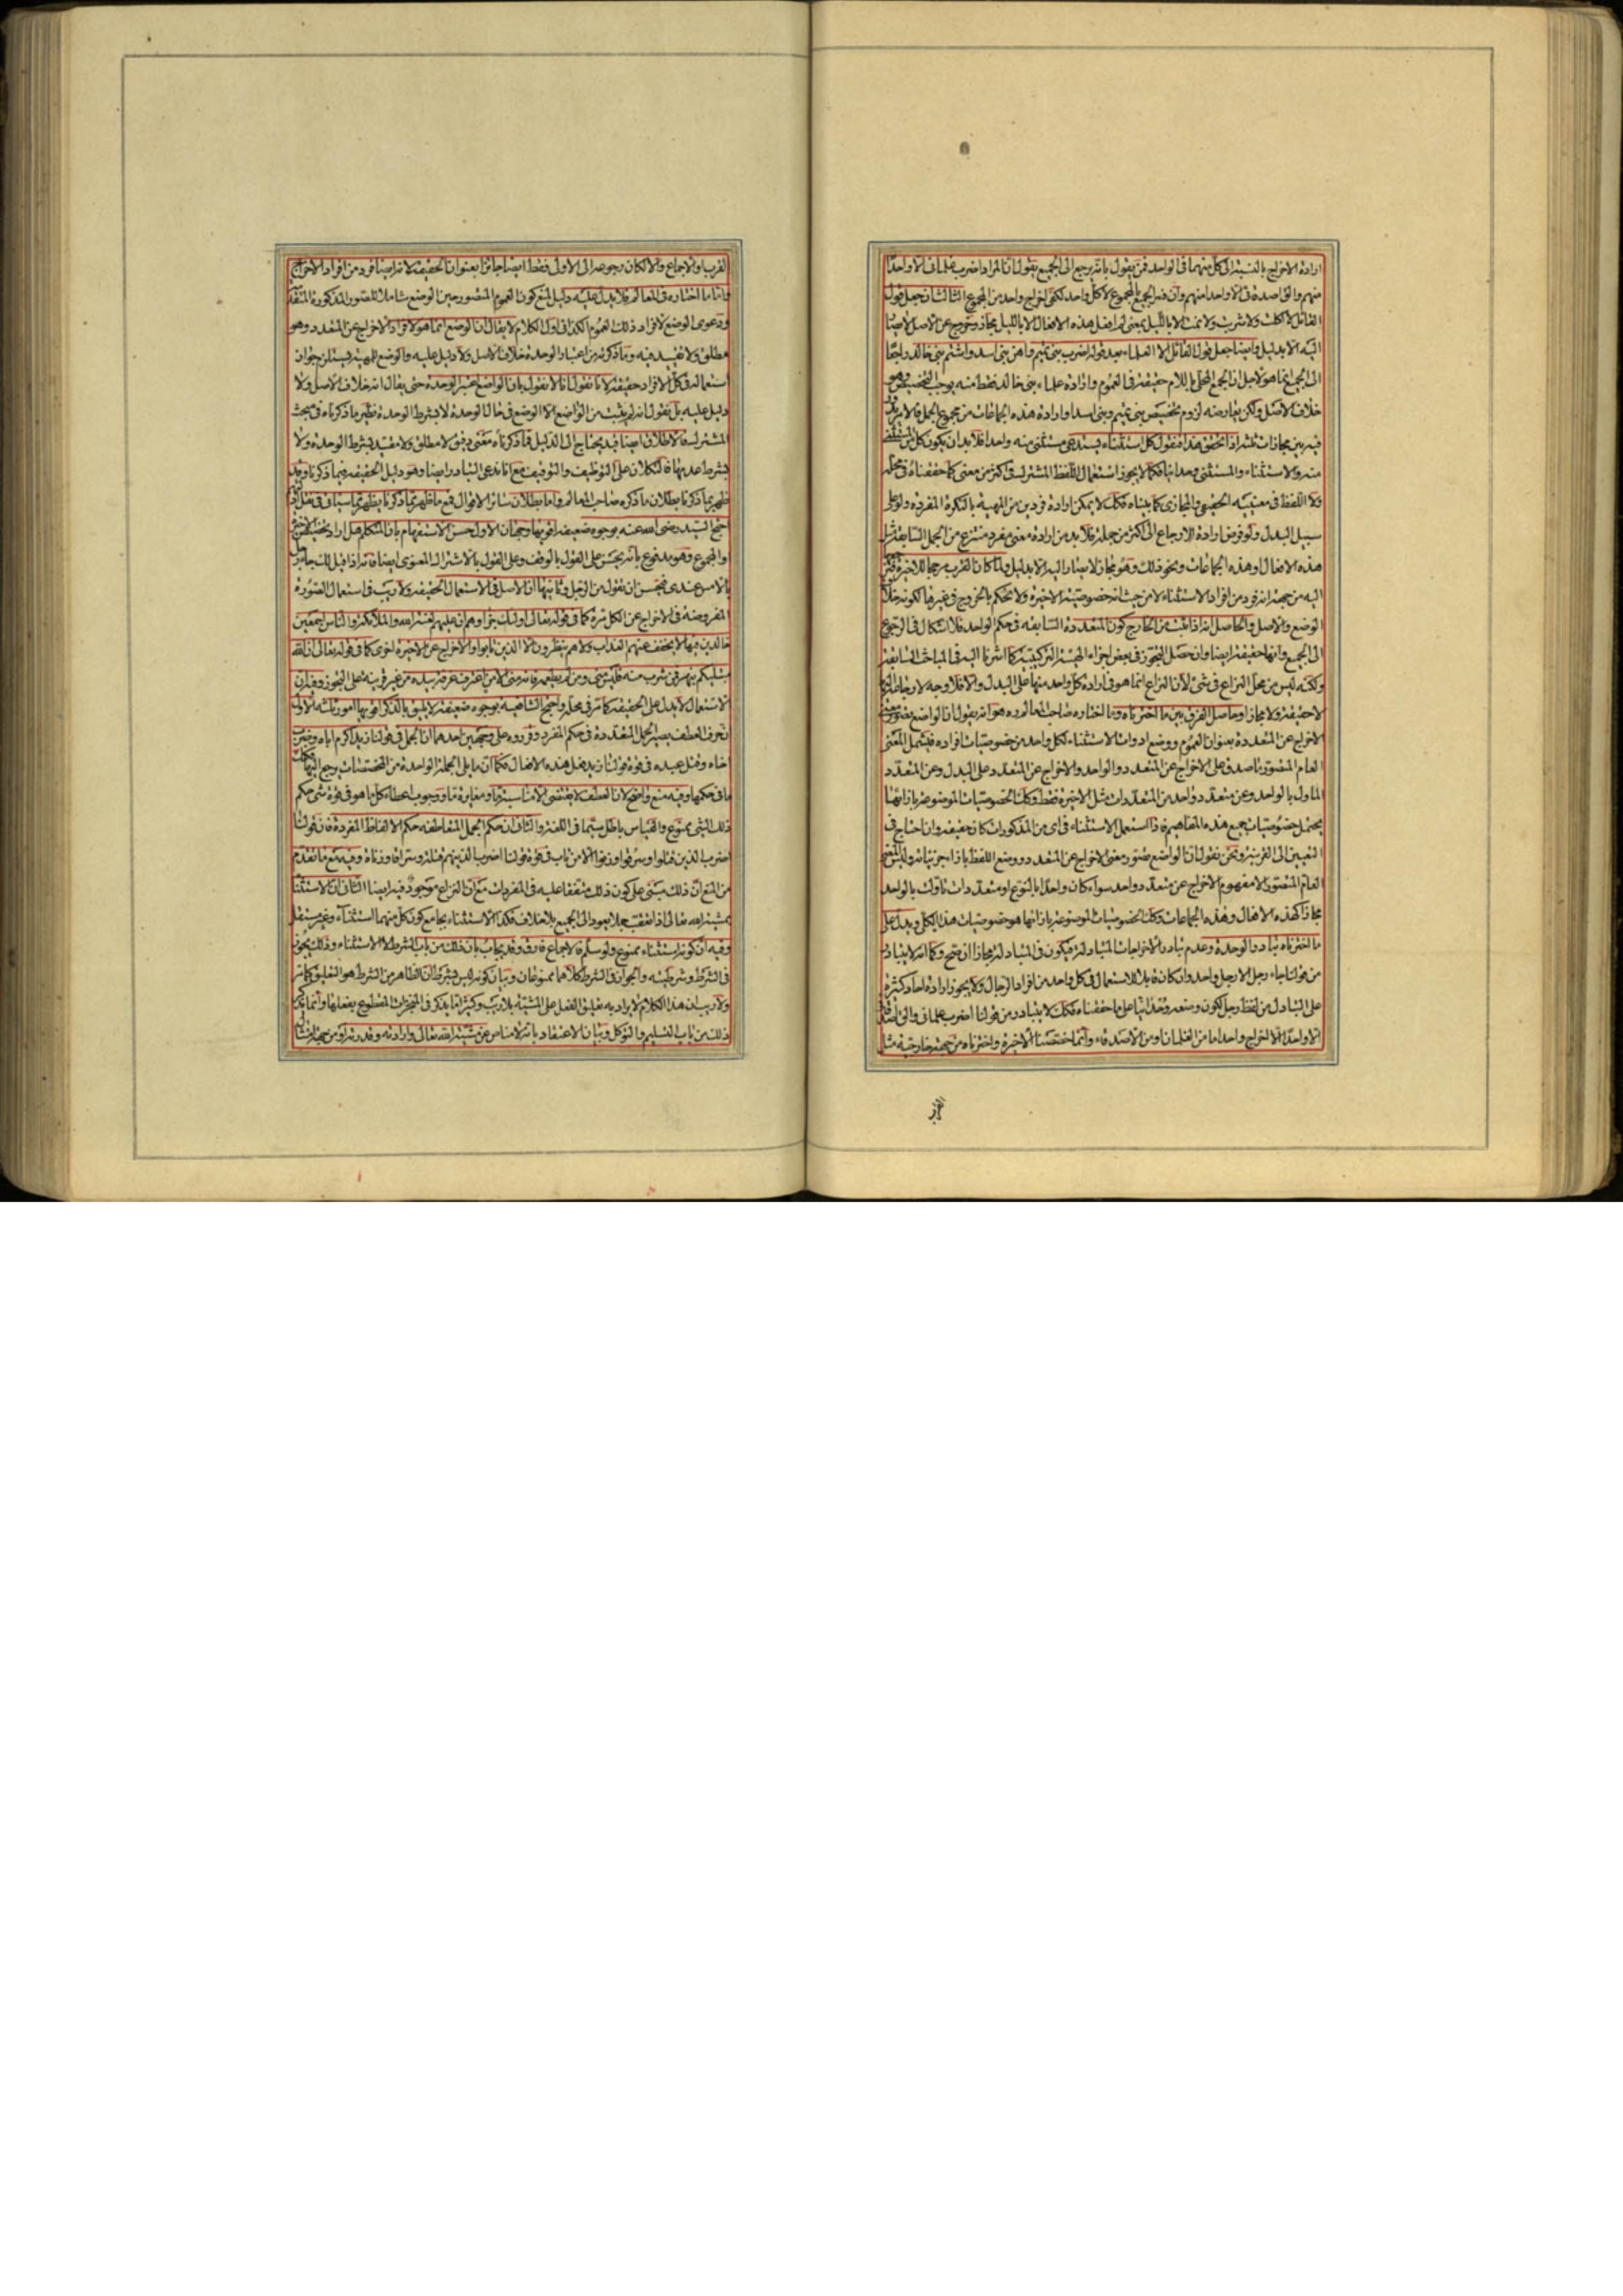 ارادة الاخراج بالنسبة الى كل منهما في الواحد فمن يقول بانه يرجع الى الجميع يقول ان المراد اضرب غلماني الا واحدا
منهم والق اصدقائي الا واحدا منهم وان فسر الجميع بالمجموع لا كل واحد لكفى اخراج واحد من المجموع الثالث ان جعل قول
القائل لا اكلت ولا شربت ولا نمت الا بالليل بمعنى لم افعل هذه الافعال الا بالليل مجاز وخروج عن الاصل لا يصار
اليه الا بدليل وايضا جعل قول القائل الا العلماء بعد قوله اضرب بني تميم واهن بني اسد واشتم بني خالد راجعا
الى الجميع انما هو لاجل ان الجمع المحلى باللام حقيقة في العموم وارادة علماء بني خالد فقط منه يوجب التخصيص وهو
خلاف الاصل ولكن يعارضه لزوم تخصيص بني تميم وبني اسد او ارادة هذه الجماعات من مجموع الجمل فالامر
فيه بين مجازات ثلثة اذا تحقق هذا فنقول كل استثناء يستدعي مستثنى منه واحدا فلا بد ان يكون كل من المستثنى
منه والاستثناء والمستثنى وحدانيا فكما لا يجوز استعمال اللفظ المشترك في اكثر من معنى كما حققناه في محله
ولا اللفظ في معنييه الحقيقي والمجازي كما بيناه فكك لا يمكن ارادة فردين من المهية بالنكرة المفردة ولو على
سبيل البدل ولو فرض ارادة الارجاع الى اكثر من جملة فلا بد من ارادة معنى مفرد منتزع من الجمل السابقة مثل
هذه الافعال او هذه الجماعات ونحو ذلك وهو مجاز لا يصار اليه الا بدليل ولما كان القرب مرجحا للاخيرة
اليه من جهة انه فرد من افراد الاستثناء لا من حيث انه خصوصية الاخيرة ولا نحكم بالخروج في غيرها لكونه خلاف
الوضع والاصل والحاصل انه اذا ثبت من الخارج كون المتعددة السابقة في حكم الواحد فلا اشكال في الرجوع
الى الجميع وانها حقيقة ايضا وان حصل التجوز في بعض اجزاء الهيئة التركيبية كما اشرنا اليه في المباحث السابقة
ولكنه ليس من محل النزاع في شئ لان النزاع انما هو في ارادة كل واحد منها على البدل والا فلا وجه لارجاعه اليها
لا حقيقة ولا مجازا وحاصل الفرق بين ما اخترناه وما اختاره صاحب المعالم ره هو انه يقول ان الواضع تصور معنى
الاخراج عن المتعددة بعنوان العموم ووضع ادوات الاستثناء لكل واحد من خصوصيات افراده فيشمل المعنى
العام المتصور ما صدق على الاخراج عن المتعدد والواحد والاخراج عن المتعدد على البدل وعن المتعدد
الماول بالواحد وعن متعدد واحد من المتعددات مثل الاخيرة فقط وكك الخصوصيات الموضوعة بازائها
يحتمل خصوصيات جميع هذه المفاهيم فاذا استعمل الاستثناء في اى من المذكورات كان حقيقة وان احتاج في
التعيين الى القرينة ونحن نقول ان الواضع تصور معنى الاخراج عن المتعدد ووضع اللفظ بازاء جزئياته وليس المعنى
العام المتصور الا مفهوم الاخراج عن متعدد واحد سواء كان واحدا بالنوع او متعددات تاولت بالواحد
مجازا كهذه الافعال وهذه الجماعات وكك الخصوصيات الموضوعة بازائها هو خصوصيات هذا الكلى ويدل على
ما اخترناه تبادر الوحدة وعدم تبادر الاخراجات المتبادلة فيكون في المتبادلة مجازا ان صح وكما انه لا يتبادر
من قولنا جاء رجل الا رجل واحد وان كان قابلا للاستعمال في كل واحد من افراد الرجال ولا يجوز ارادة احاد كثيرة
على التبادل من لفظ رجل لكون وضعه وحدانيا على ما حققناه فكك لا يتبادر من قولنا اضرب غلماني والق اصدقائي
الا واحدا الا اخراج واحد اما من الغلمان او من الاصدقاء وانما خصصنا الاخيرة واخترناه من جهة خارجية مثل
القرب او الاجماع والا لكان رجوعه الى الاولى فقط ايضا جائزا بعنوان الحقيقة لانه ايضا فرد من افراد الاخراج
واما ما اختاره في المعالم فلا يدل عليه دليل لمنع كون العموم المتصور حين الوضع شاملا للصور المذكورة المتقدمة
ودعوى الوضع لافراد ذلك العموم الكذائي اول الكلام لا يقال ان الوضع انما هو لافراد الاخراج عن المتعدد وهو
مطلق ولا تقييد فيه وما ذكرته من اعتبار الوحدة خلاف الاصل ولا دليل عليه والوضع للمهية يستلزم جواز
استعماله في كل الافراد حقيقة لانا نقول انا لا نقول بان الواضع اعتبر الوحدة حتى يقال انه خلاف الاصل ولا
دليل عليه بل نقول انه لم يثبت من الواضع الا الوضع في حال الوحدة لا بشرط الوحدة نظير ما ذكرناه في مبحث
المشترك فالاطلاق ايضا قيد يحتاج الى الدليل فما ذكرناه معنى دقيق لا مطلق ولا مقيد بشرط الوحدة ولا
بشرط عدمها فالتكلان على التوظيف والتوقيف مع انا ندعى التبادر ايضا وهو دليل الحقيقة فيما ذكرنا وقد
ظهر بما ذكرنا بطلان ما ذكره صاحب المعالم واما بطلان سائر الاقوال فمع ما ظهر بما ذكرنا يظهر بما سياتي في نقل
احتج السيد رضي الله عنه بوجوه ضعيفة اقويها وجهان الاول حسن الاستفهام بان المتكلم هل اراد تخصيص الاخيرة
او المجموع وهو مدفوع بانه يحسن على القول بالوقف وعلى القول بالاشتراك المعنوي ايضا فانه اذا قيل لك جاء رجل
بالامس عندي فيحسن ان تقول من الرجل وثانيهما ان الاصل في الاستعمال الحقيقة ولا ريب في استعمال الصورة
المفروضة في الاخراج عن الكل تارة كما في قوله تعالى اولئك جزاؤهم ان عليهم لعنة الله والملائكة والناس اجمعين
خالدين فيها لا يخفف عنهم العذاب ولا هم ينظرون الا الذين تابوا والاخراج عن الاخيرة اخرى كما في قوله تعالى ان الله
مبتليكم بنهر فمن شرب منه فليس مني ومن لم يطعمه فانه مني الا من اغترف غرفة بيده من غير قرينة على التجوز وفيه ان
الاستعمال لا يدل على الحقيقة كما مر في محله واحتج الشافعية بوجوه ضعيفة لا يليق بالذكر اقويها امور ثلثة الاول
ان حرف العطف يصير الجمل المتعددة في حكم المفرد وقرروه على وجهين احدهما ان الجمل في قولنا زيد اكرم اباه وضرب
اخاه وقتل عبيده في قوة قولنا زيد فعل هذه الافعال فكما ان ما يلي الجملة الواحدة من المخصصات يرجع اليها فكك
ما في حكمها وفيه منع واضح لان العطف لا يقتضي الا مناسبة ما ومغايرة ما ووجوب اعطاء كل ما هو في قوة شئ حكم
ذلك الشئ ممنوع والقياس باطل سيما في اللغة والثاني ان حكم الجمل المتعاطفة حكم الالفاظ المفردة فان قولنا
اضرب الذين قتلوا وسرقوا وزنوا الا من تاب في قوة قولنا اضرب الذين هم قتلة وسراق وزناة وفيه مع ما تقدم
من المنع ان ذلك مبتنى على كون ذلك متفقا عليه في المفردات مع ان النزاع موجود فيه ايضا الثاني ان الاستثناء
بمشية الله تعالى اذا تعقب جملا يعود الى الجميع بلا خلاف فكذا الاستثناء بجامع كون كل منهما استثناء وغير مستقل
وفيه ان كونه استثناء ممنوع ولو سلم فالاجماع فارق وقد يجاب بان ذلك من باب الشرط لا الاستثناء وذلك يجوز
في الشرط وشرطيته والجواز في الشرط كلاهما ممنوعان وبيان كونه ليس بشرط ان الظاهر من الشرط هو التعليق كما مر
ولا ريب ان هذا الكلام لا يراد به تعليق الفعل على المشية بلا ريب وكثيرا ما يذكر في المنجزات المقطوع بفعلها وانما يذكر
ذلك من باب التسليم والتوكل وبيان الاعتقاد بانه لا مناص عن مشية الله تعالى وارادته وقدرته او من جهة امتثال